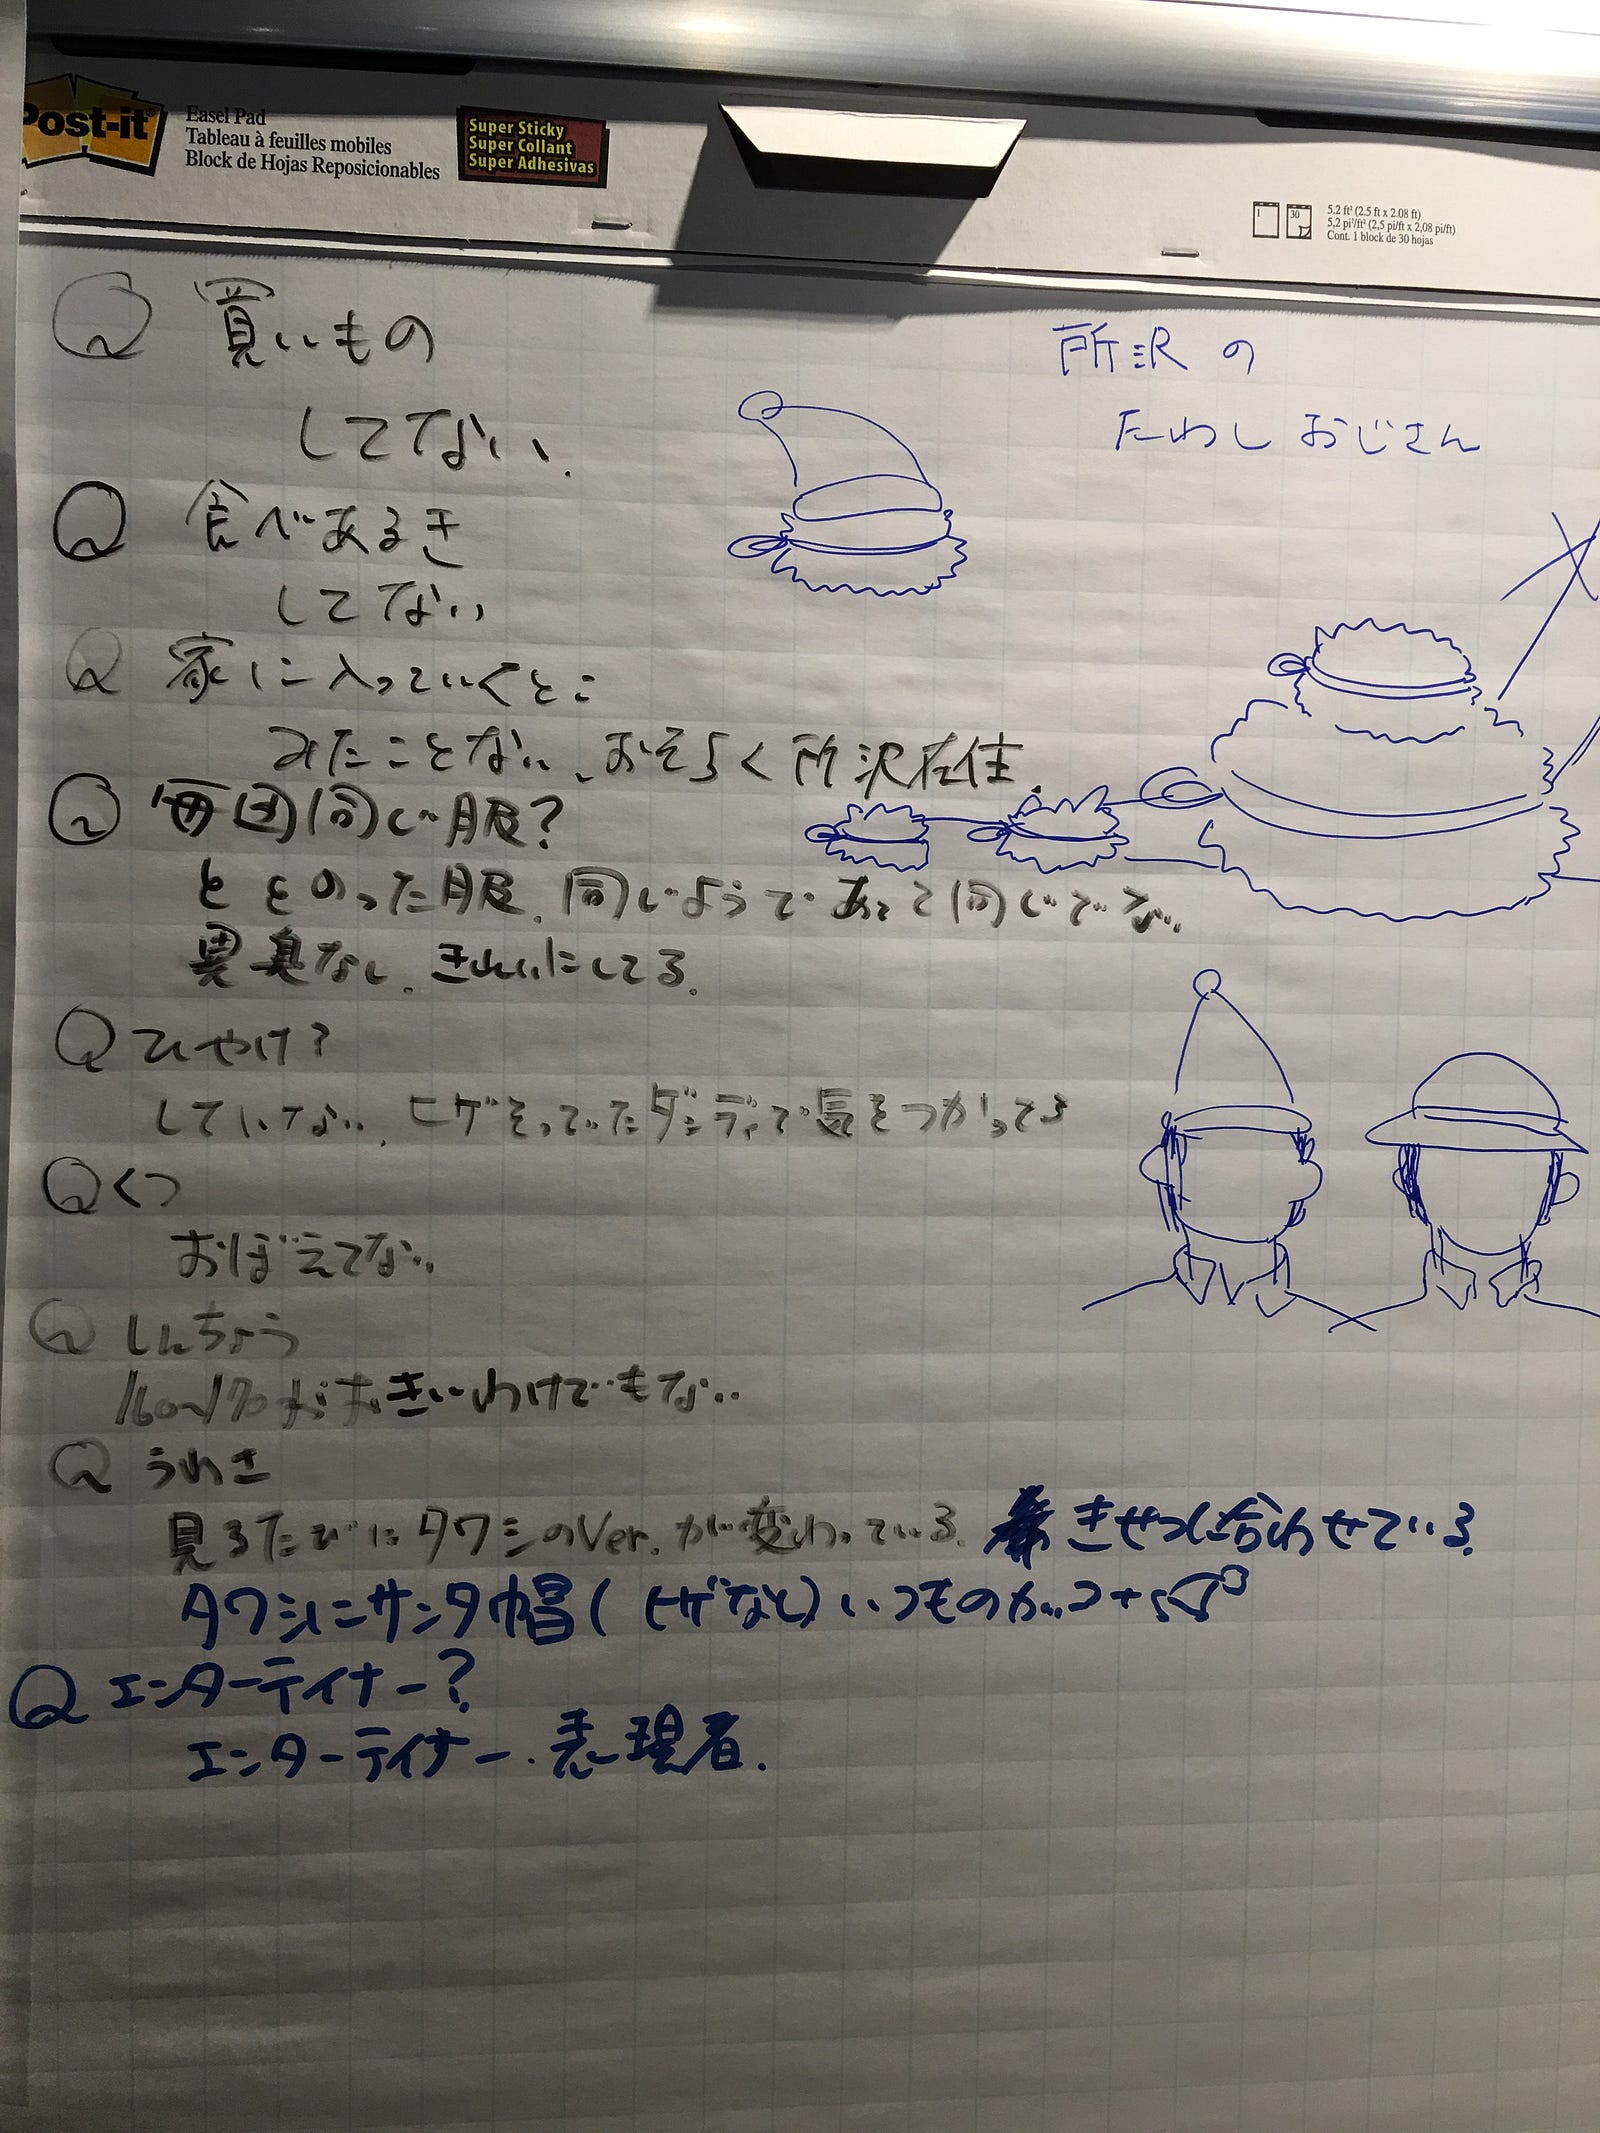 Post-it
Easel Pad
Tableau à feuilles mobiles
Block de Hojas Reposicionables
Super Sticky
Super Collant
Super Adhesivas
1
30
5.2 ft² (2.5 ft x 2.08 ft)
5,2 pi²/ft² (2,5 pi/ft x 2,08 pi/ft)
Cont. 1 block de 30 hojas
所沢の
たわしおじさん
Q 買いもの
してない.
Q 食べあるき
してない
Q 家に入っていくとこ
みたことない、おそらく所沢在住.
Q 毎回同じ服?
ととのった服. 同じようであって同じでない.
異臭なし. きれいにしてる.
Q ひやけ?
していない. ヒゲそっていたダンディで気をつかってる
Q くつ
おぼえてない.
Q しんちょう
160~170 おおきいわけでもない.
Q うわさ
見るたびにタワシのVer.が変わっている. きせつに合わせている.
タワシにサンタ帽(ヒゲなし)いつものかっこ+
Q エンターティナー?
エンターティナー.表現者.